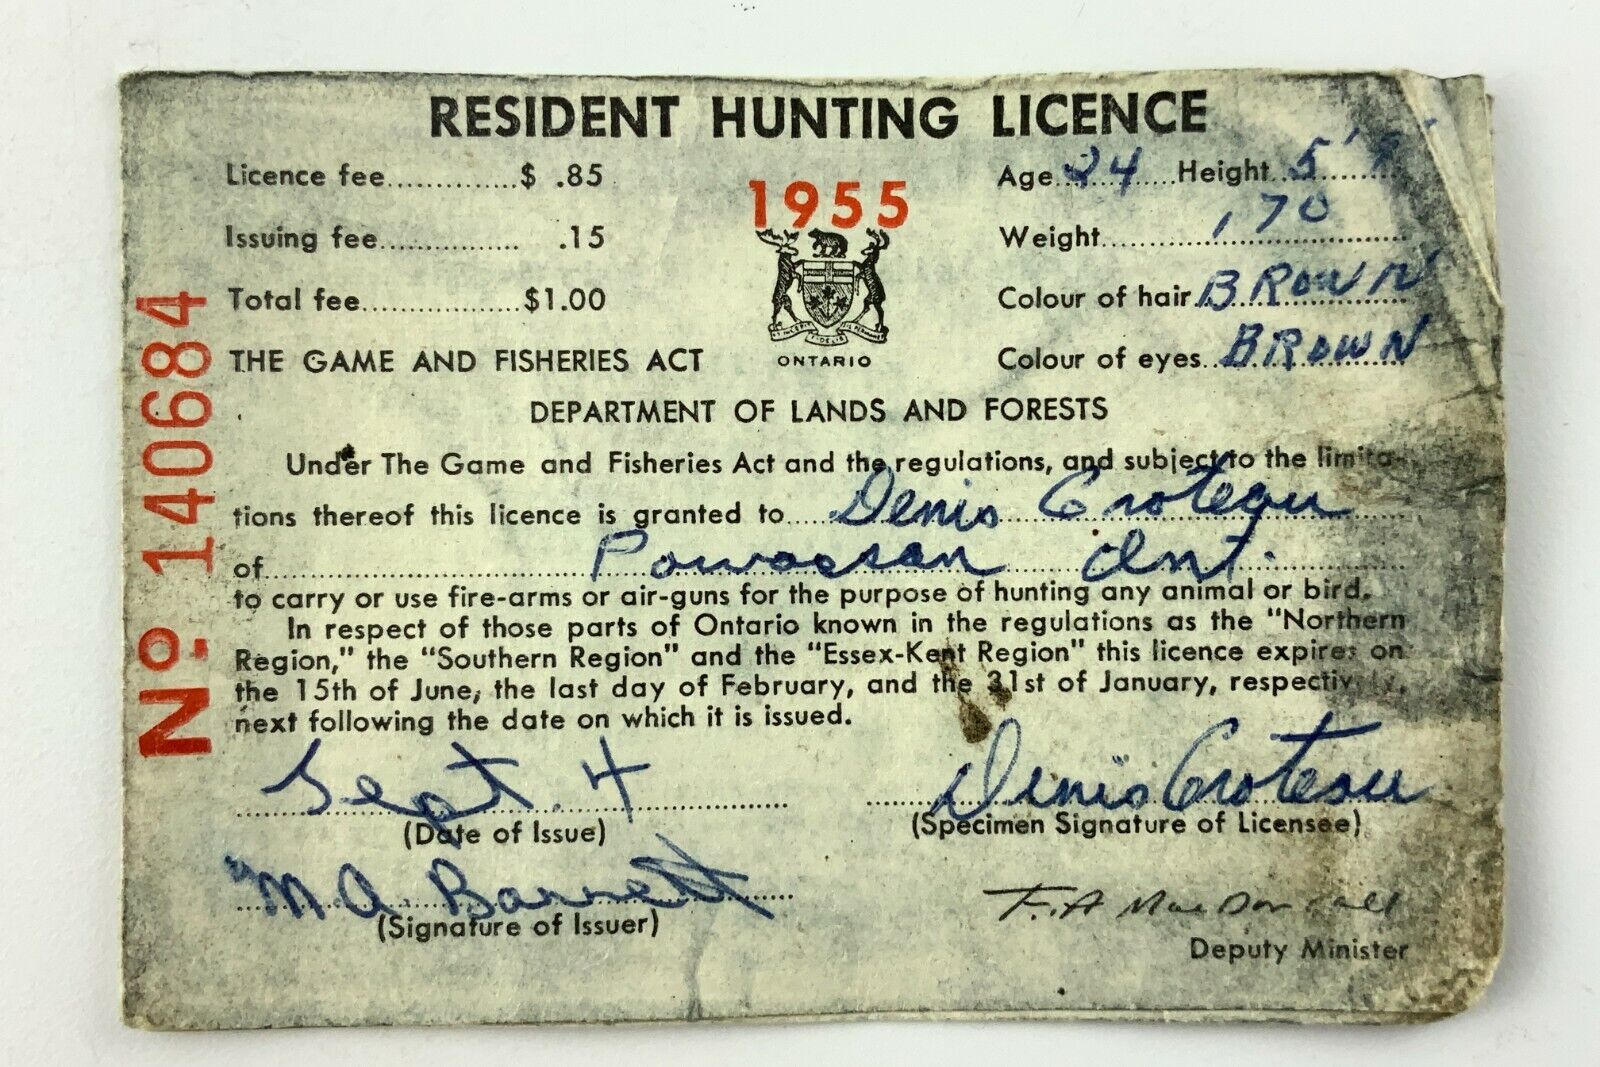 RESIDENT HUNTING LICENCE
Licence fee..............$ .85
Issuing fee............... .15
Total fee..................$1.00
THE GAME AND FISHERIES ACT
1955
ONTARIO
Age 24 Height 5'
Weight 170
Colour of hair BROWN
Colour of eyes BROWN
No. 140684
DEPARTMENT OF LANDS AND FORESTS
Under The Game and Fisheries Act and the regulations, and subject to the limita-
tions thereof this licence is granted to Denis Croteau
of Powassan Ont.
to carry or use fire-arms or air-guns for the purpose of hunting any animal or bird.
In respect of those parts of Ontario known in the regulations as the "Northern
Region," the "Southern Region" and the "Essex-Kent Region" this licence expires on
the 15th of June, the last day of February, and the 31st of January, respectively,
next following the date on which it is issued.
Sept. 4
(Date of Issue)
Denis Croteau
(Specimen Signature of Licensee)
M A Barrett
(Signature of Issuer)
F. A MacDougall
Deputy Minister